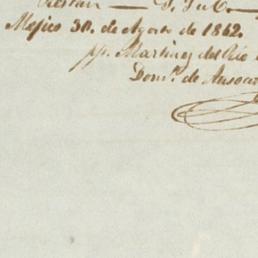 Mejico 30. de Agosto de 1842.
pp. Martinez del Rio
Dom.º de Ansoa